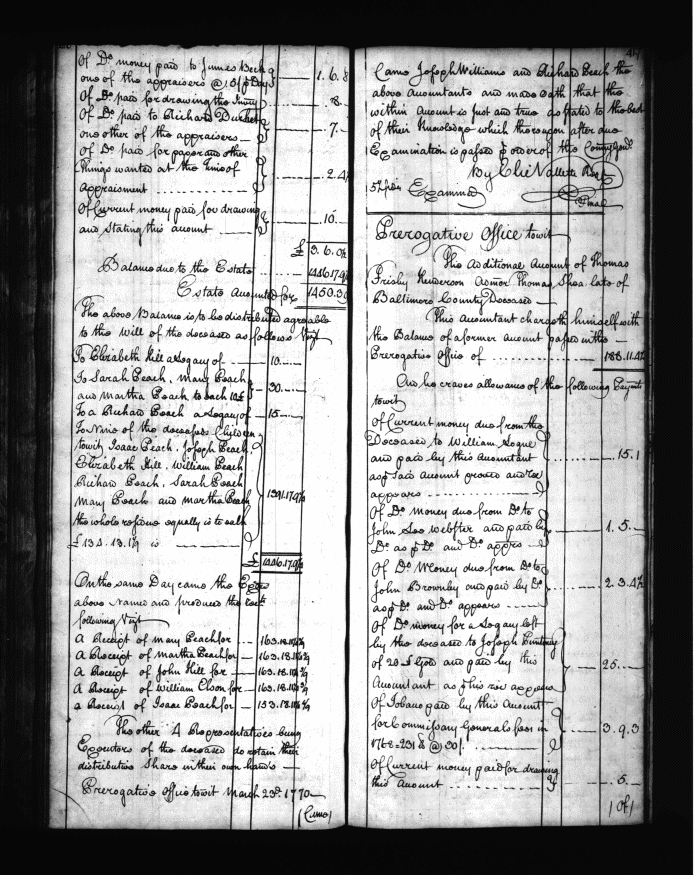 Of Do. money paid to James Beck
one of the appraisers @ 1.6 p Day 1.6.8
Of Do. paid for drawing the Inventy 8.
Of Do. paid to Richard
one other of the appraisers 7.
Of Do. paid for paper and other
things wanted at the time of
appraisment 2.4
Of Current money paid for drawing
and Stating this amount 10.
£ 3.6.0½
Balance due to the Estate 1446.17.9½
Estate Amounted for 1450.3
The above Balance is to be distributed agreable
to the Will of the deceased as follows Vizt
To Elizabeth Hill a Legacy of 10.
To Sarah Peach, Mary Peach
and Martha Peach to each 10£ 30.
To a Richard Peach a Legacy of 15
To Nine of the deceaseds Children
towit Isaac Peach, Joseph Peach
Elizabeth Hill, William Peach
Richard Peach, Sarah Peach
Mary Peach and Martha Peach
the whole residue equally is to each 1391.17.9½
£ 154.13.1¾ is
£ 1446.17.9½
On the same Day came the Exors
above Named and produced the rects
following Vizt
A Receipt of Mary Peach for 163.18.
A Receipt of Martha Peach for 163.18.
A Receipt of John Hill for 163.18.
A Receipt of William Elson for 163.18.
a Receipt of Isaac Peach for 153.18.
The other 4 Representatives being
Executors of the deceased do retain their
distributive Share in their own hands
Prerogative Office towit March 23d. 1770
(Came)
Came Joseph Williams and Richard Peach the
above accountants and made Oath that the
within Amount is Just and true as stated to the best
of their Knowledge which thereupon after due
Examination is passed p order of the Commy Genl.
By Elie Vallette Regr
Examined
Prerogative Office towit
The Additional Amount of Thomas
Frisby Henderson Admor Thomas Shea late of
Baltimore County Deceased
This Accountant chargeth himself with
the Balance of a former Amount passed in the
Prerogative Office of 188.11.4½
And he craves allowance of the following Paymts
towit
Of Current money due from the
Deceased to William Logue
and paid by this Accountant
as p said Amount proved and rect
appears 15.1
Of Do. money due from Do. to
John Lee Webster and paid by
Do. as p Do. and Do. appears 1.5.
Of Do. Money due from Do. to
John Brownley and paid by Do.
as p Do. and Do. appears 2.3.4½
Of Do. money for a Legacy left
by the deceased to Joseph
of 20 £ and paid by this
Accountant as p his rect appears 25.
Of Tobacco paid by this Amount
for Commissary Generals fees in
1768 - 231 lb @ 30/ 3.9.3
Of Current money paid for drawing
this Amount .5.
(Of)